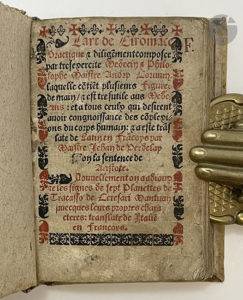 L'art de Ciromac
Practique & diligēment compose
par tresexpert Medecin & Philo
sophe Maistre Andry Corum,
laquelle cōtiēt plusieurs Figures
de main, & est tresutile aux Mede
cins: et a tous ceulx qui desirent
avoir congnoissance des cōplexi
ons du corps humain: & a este trās
late de Latin en Frācoys par
Maistre Jehan de Verdellay
selon la sentence de
Aristote.
Nouvellement on a adiou
te les signes de sept Planettes de
Tricasso de Ceresari Mantuan
avecques leurs propres chara
cteres: translate de Italiē
en Francoys.